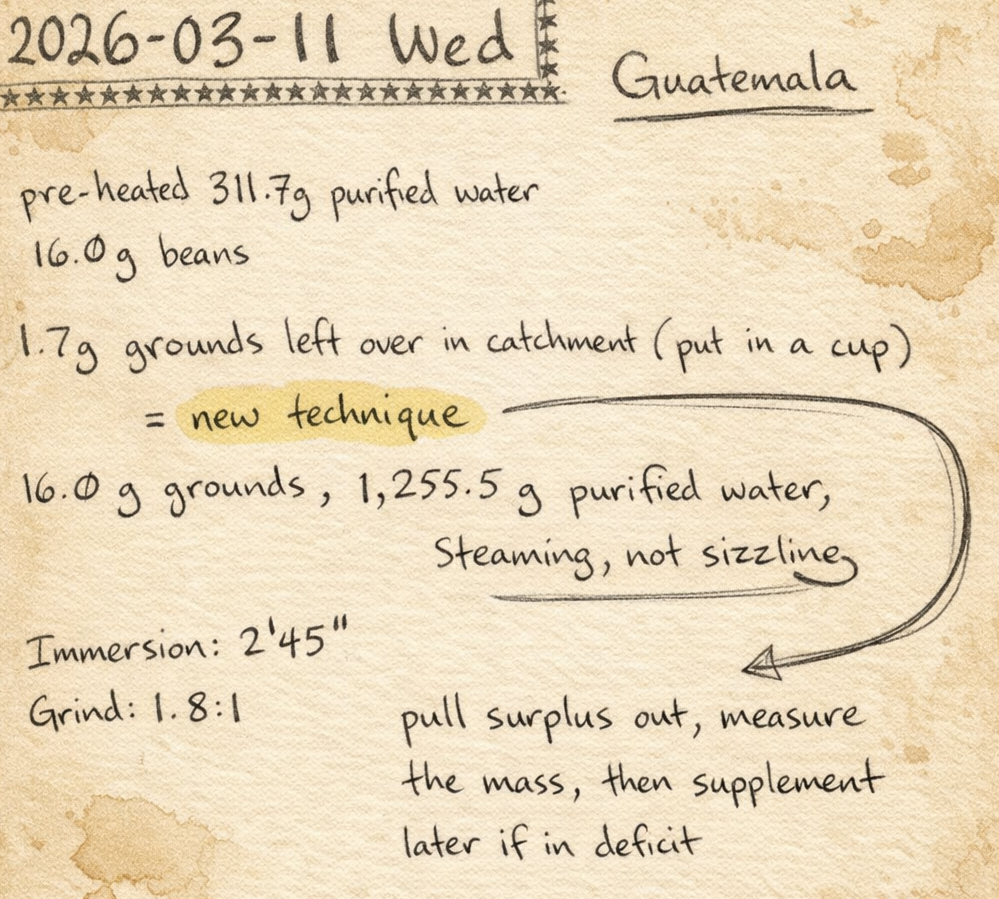 2026-03-11 Wed
Guatemala
pre-heated 311.7g purified water
16.0g beans
1.7g grounds left over in catchment (put in a cup)
= new technique
16.0 g grounds, 1,255.5 g purified water,
Steaming, not sizzling
Immersion: 2'45"
Grind: 1.8:1
pull surplus out, measure
the mass, then supplement
later if in deficit